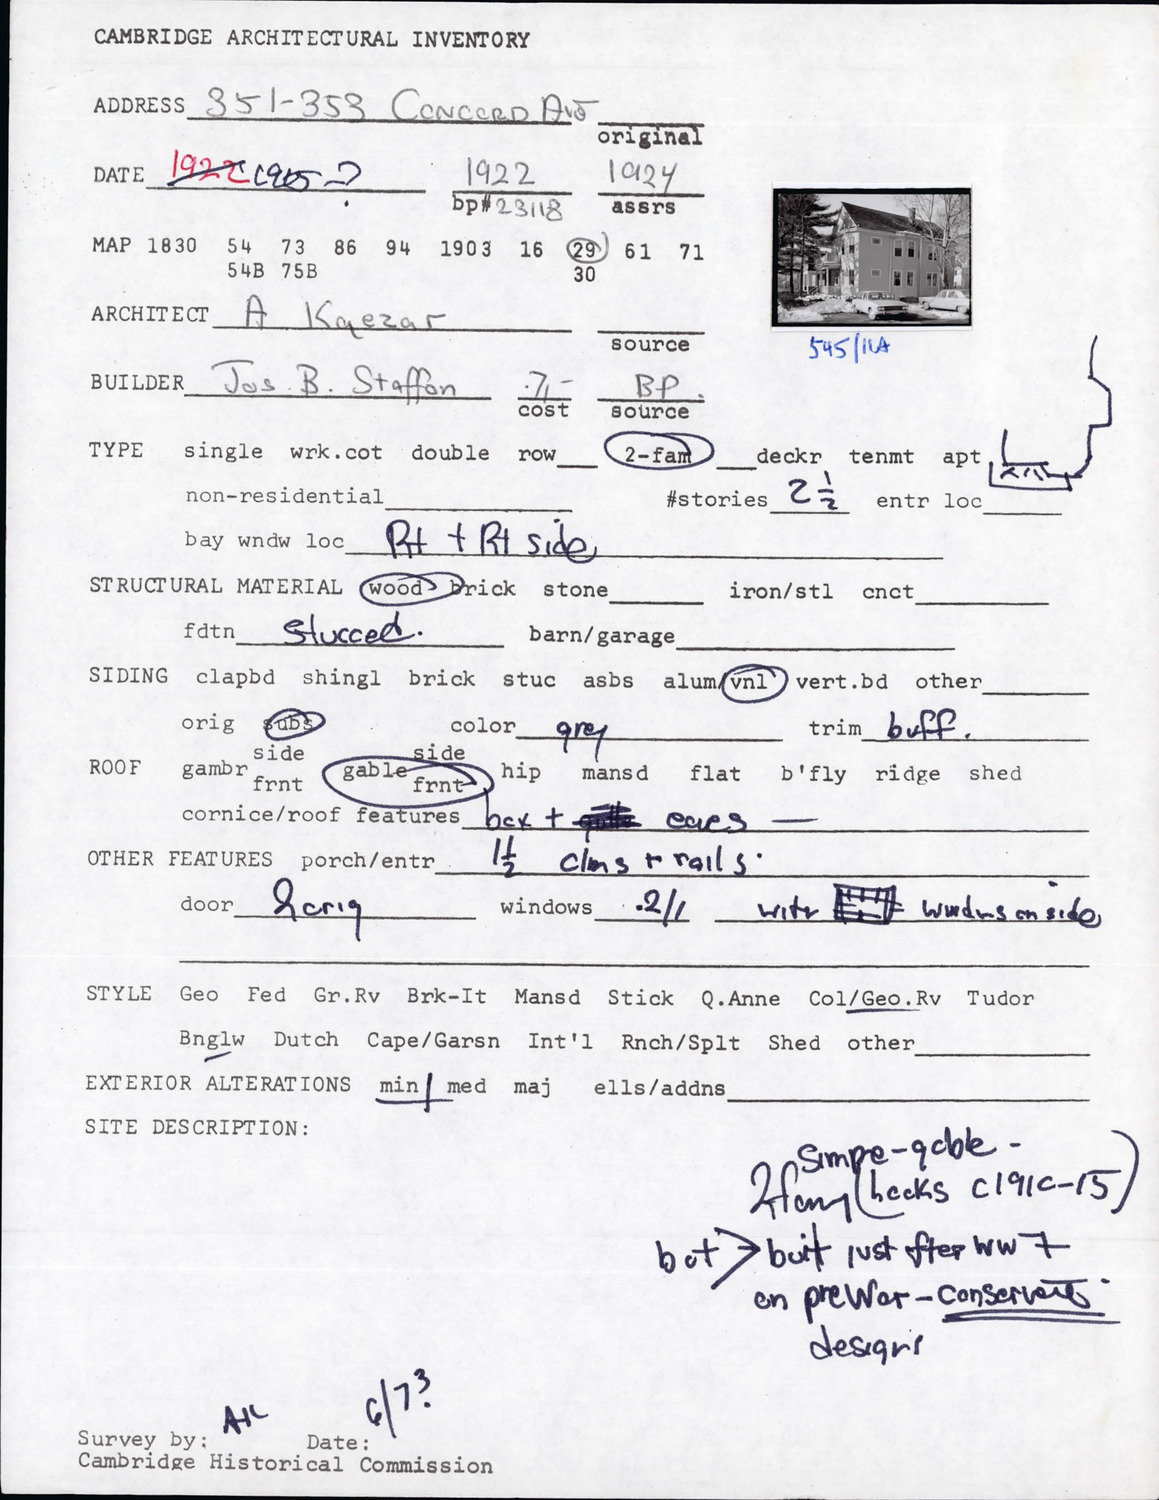 CAMBRIDGE ARCHITECTURAL INVENTORY
ADDRESS 351-353 CONCORD AVE
original
DATE 1922 ? 1922 1924
bp#23118 assrs
MAP 1830 54 73 86 94 1903 16 29 61 71
54B 75B 30
ARCHITECT A
source
545/11A
BUILDER Jos. B. BP.
cost source
TYPE single wrk.cot double row 2-fam deckr tenmt apt
non-residential #stories 2 1/2 entr loc
bay wndw loc Rt + Rt side
STRUCTURAL MATERIAL wood brick stone iron/stl cnct
fdtn stucced. barn/garage
SIDING clapbd shingl brick stuc asbs alum/vnl vert.bd other
orig subs color grey trim buff.
side side
ROOF gambr gable hip mansd flat b'fly ridge shed
frnt frnt
cornice/roof features box + eaves —
OTHER FEATURES porch/entr 1 1/2 clms + rails
door 2 orig windows 2/1 with wndws on side
STYLE Geo Fed Gr.Rv Brk-It Mansd Stick Q.Anne Col/Geo.Rv Tudor
Bnglw Dutch Cape/Garsn Int'l Rnch/Splt Shed other
EXTERIOR ALTERATIONS min med maj ells/addns
SITE DESCRIPTION:
simpe-gable -
2 fam (looks c1910-15)
but > built just after WW I
on preWar - conservativ
designs
AK 6/73
Survey by: Date:
Cambridge Historical Commission